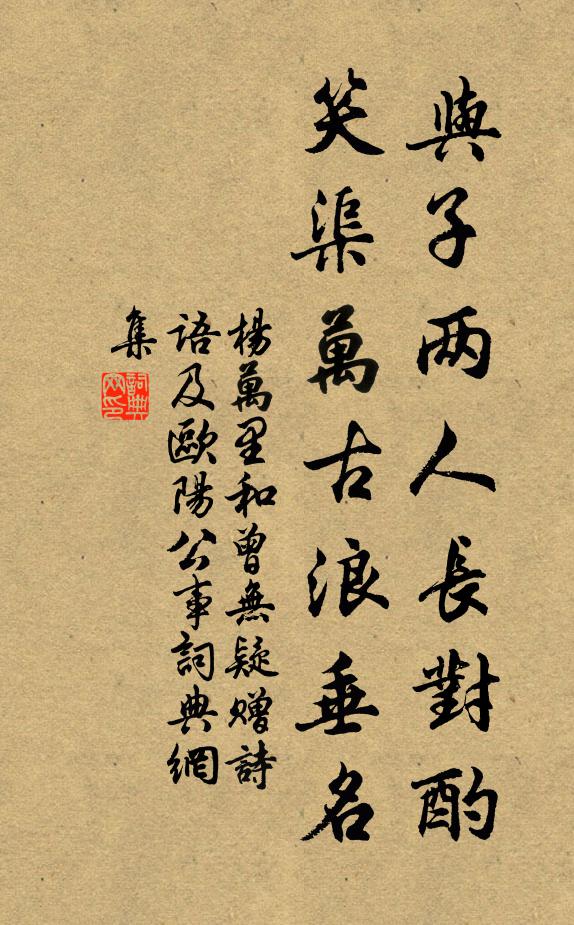 與子两人長對酌
笑渠萬古浪垂名
楊萬里和曾無疑赠詩
语及歐陽公事詞典網
集